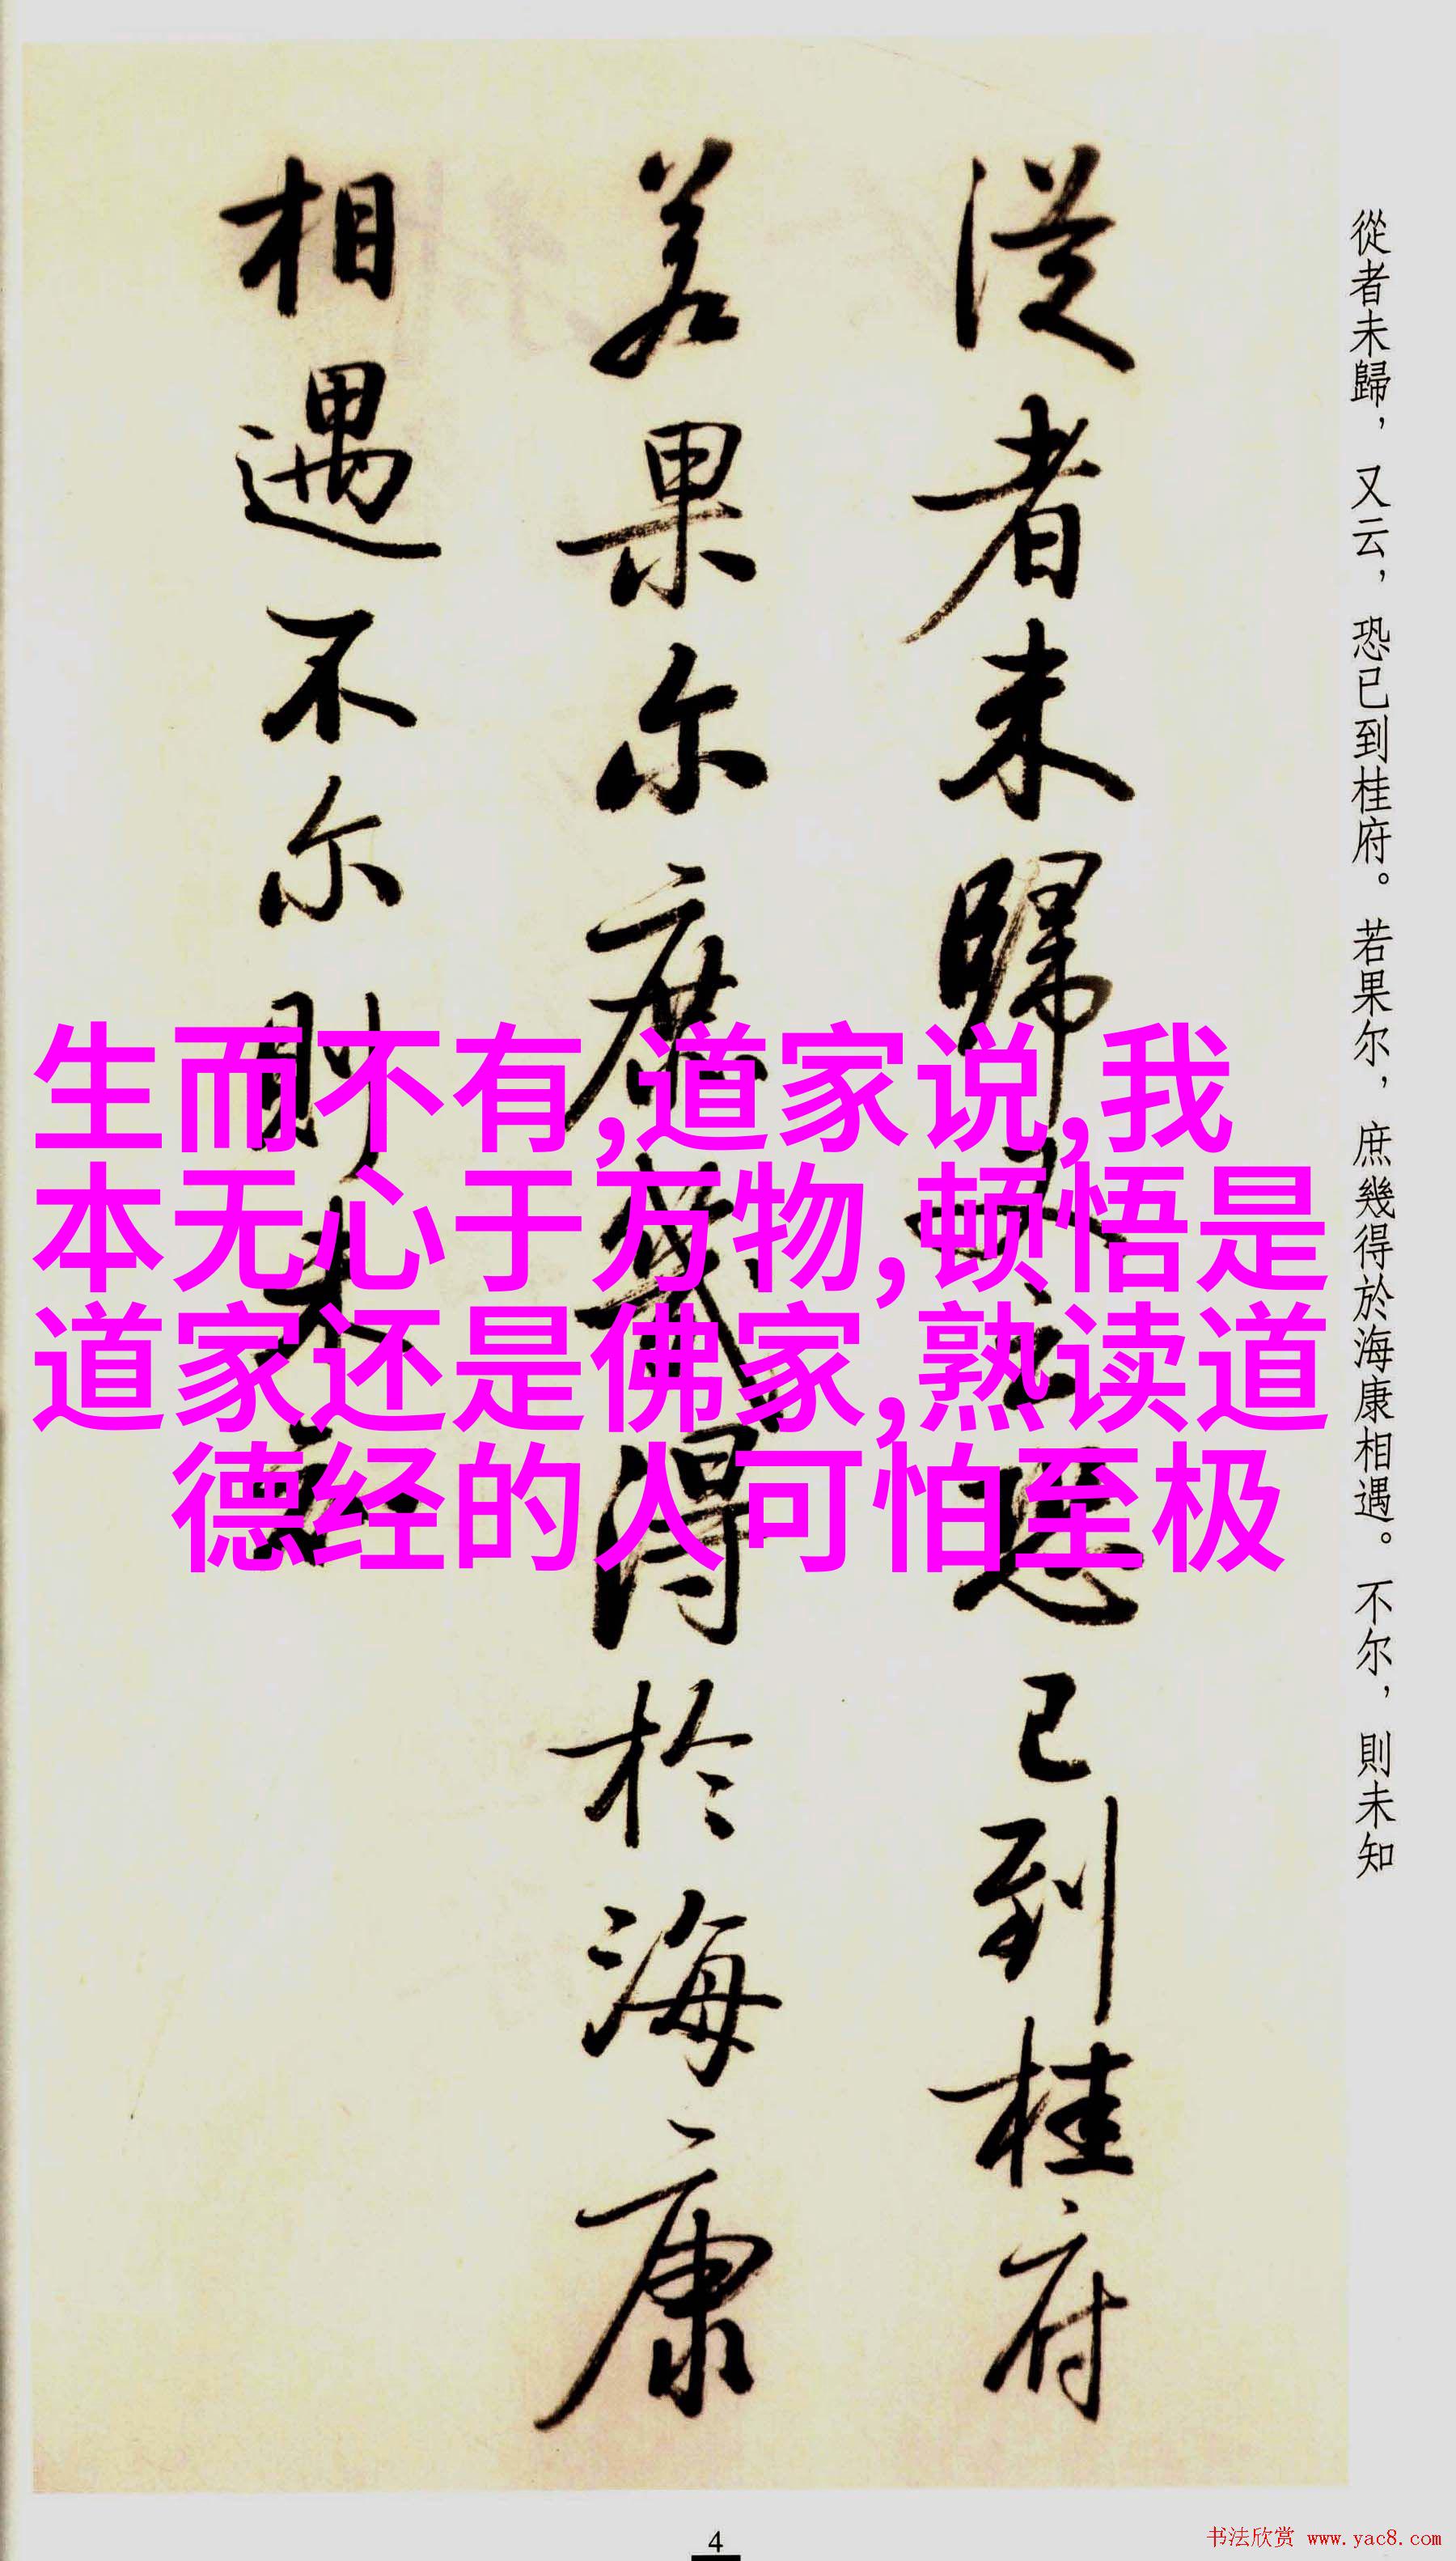 從者未歸，又云，恐已到桂府。若果尔，庶幾得於海康相遇。不尔，則未知
從者未歸又云恐已到桂府
若果尔庶幾得於海康
相遇不尔則未知
生而不有,道家说,我
本无心于万物,顿悟是
道家还是佛家,熟读道
德经的人可怕至极
4
书法欣赏 www.yac8.com